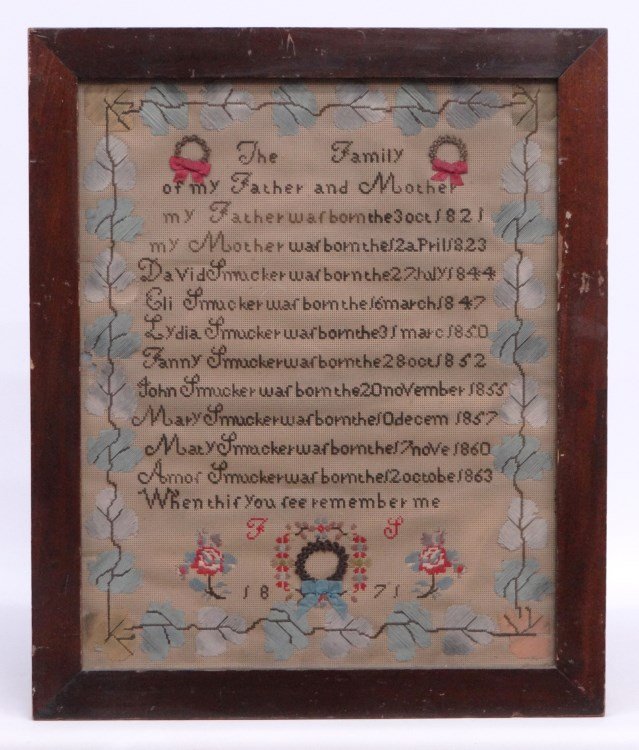 The Family
of my Father and Mother
my Father was born the 3 oct 1821
my Mother was born the 12 aPril 1823
DaVid Smucker was born the 27 July 1844
Eli Smucker was born the 16 march 1847
Lydia Smucker was born the 31 marc 1850
Fanny Smucker was born the 28 oct 1852
John Smucker was born the 20 noVember 1855
Mary Smucker was born the 10 decem 1857
Maty Smucker was born the 17 noVe 1860
Amos Smucker was born the 12 octobe 1863
When this you see remember me
F S
18 71